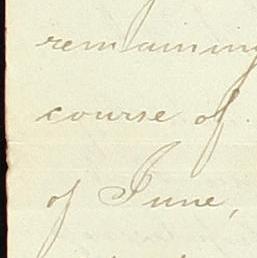 remaining
course of
of June,